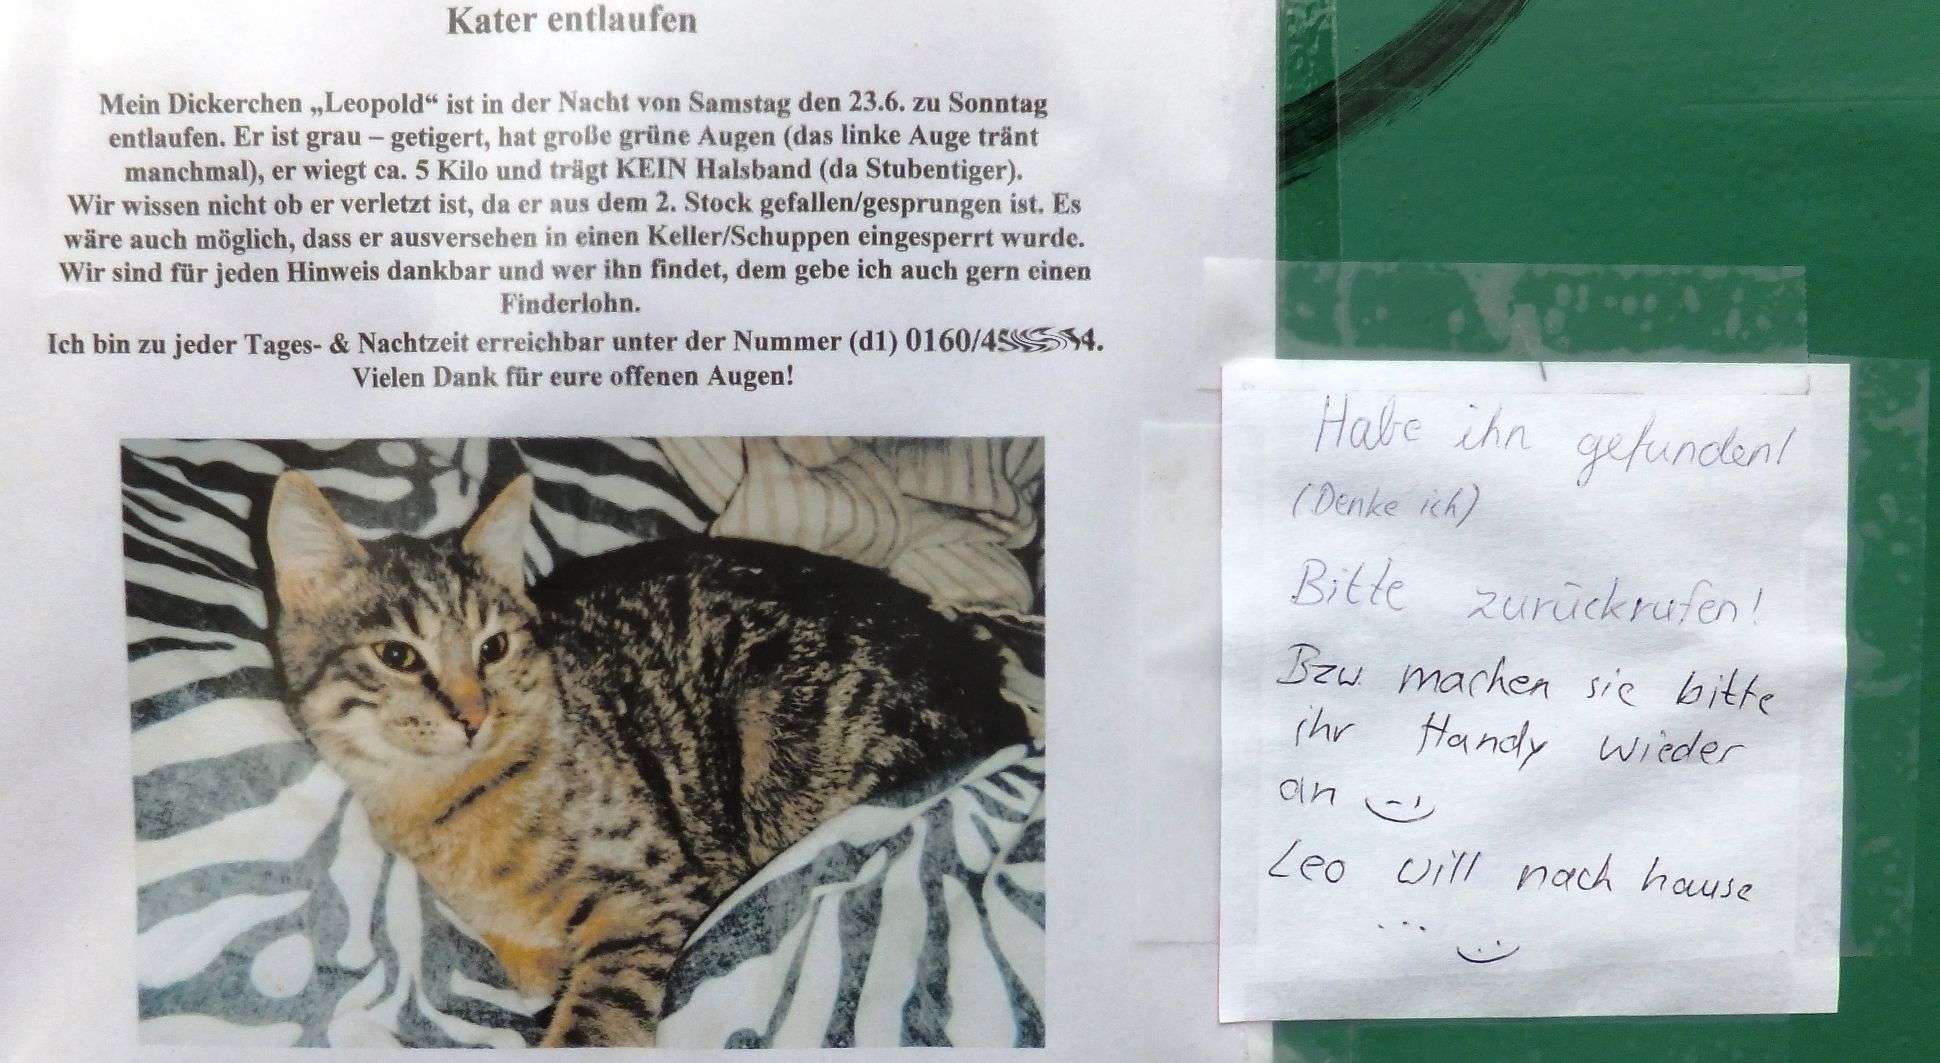 Kater entlaufen
Mein Dickerchen „Leopold“ ist in der Nacht von Samstag den 23.6. zu Sonntag
entlaufen. Er ist grau – getigert, hat große grüne Augen (das linke Auge tränt
manchmal), er wiegt ca. 5 Kilo und trägt KEIN Halsband (da Stubentiger).
Wir wissen nicht ob er verletzt ist, da er aus dem 2. Stock gefallen/gesprungen ist. Es
wäre auch möglich, dass er ausversehen in einen Keller/Schuppen eingesperrt wurde.
Wir sind für jeden Hinweis dankbar und wer ihn findet, dem gebe ich auch gern einen
Finderlohn.
Ich bin zu jeder Tages- & Nachtzeit erreichbar unter der Nummer (d1)
Vielen Dank für eure offenen Augen!
Habe ihn gefunden!
(Denke ich)
Bitte zurückrufen!
Bzw. machen sie bitte
ihr Handy wieder
an
Leo will nach hause
...